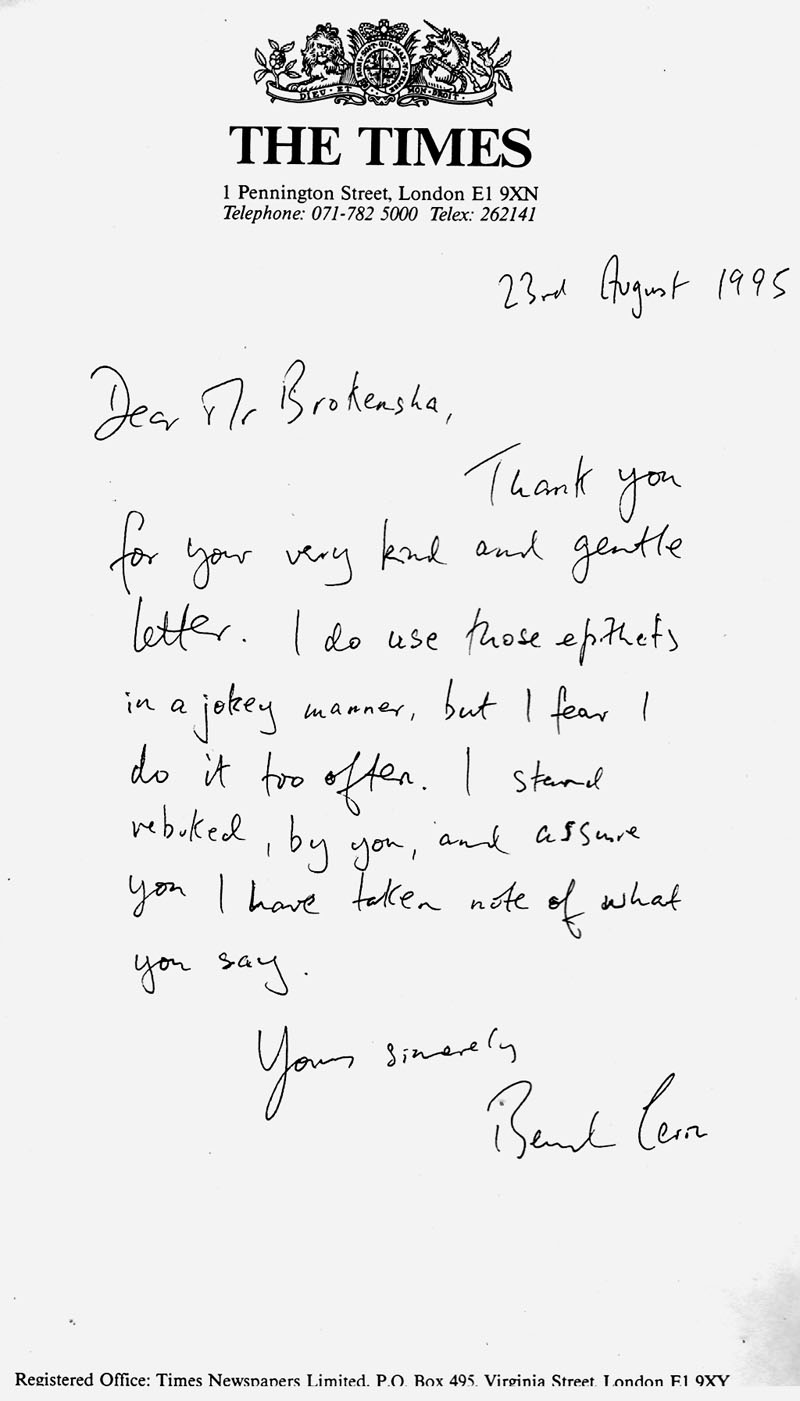 DIEU · ET · MON · DROIT ·
THE TIMES
1 Pennington Street, London E1 9XN
Telephone: 071-782 5000 Telex: 262141
23rd August 1995
Dear Mr Brokensha,
Thank you
for your very kind and gentle
letter. I do use those epithets
in a jokey manner, but I fear I
do it too often. I stand
rebuked, by you, and assure
you I have taken note of what
you say.
Yours sincerely
Bernard Levin
Registered Office: Times Newspapers Limited, P.O. Box 495, Virginia Street, London E1 9XY